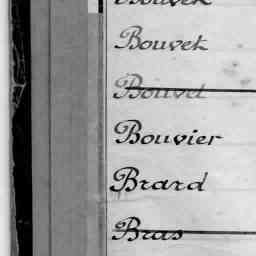 Bouvet
Bouvet
Bouvet
Bouvier
Brard
Bras